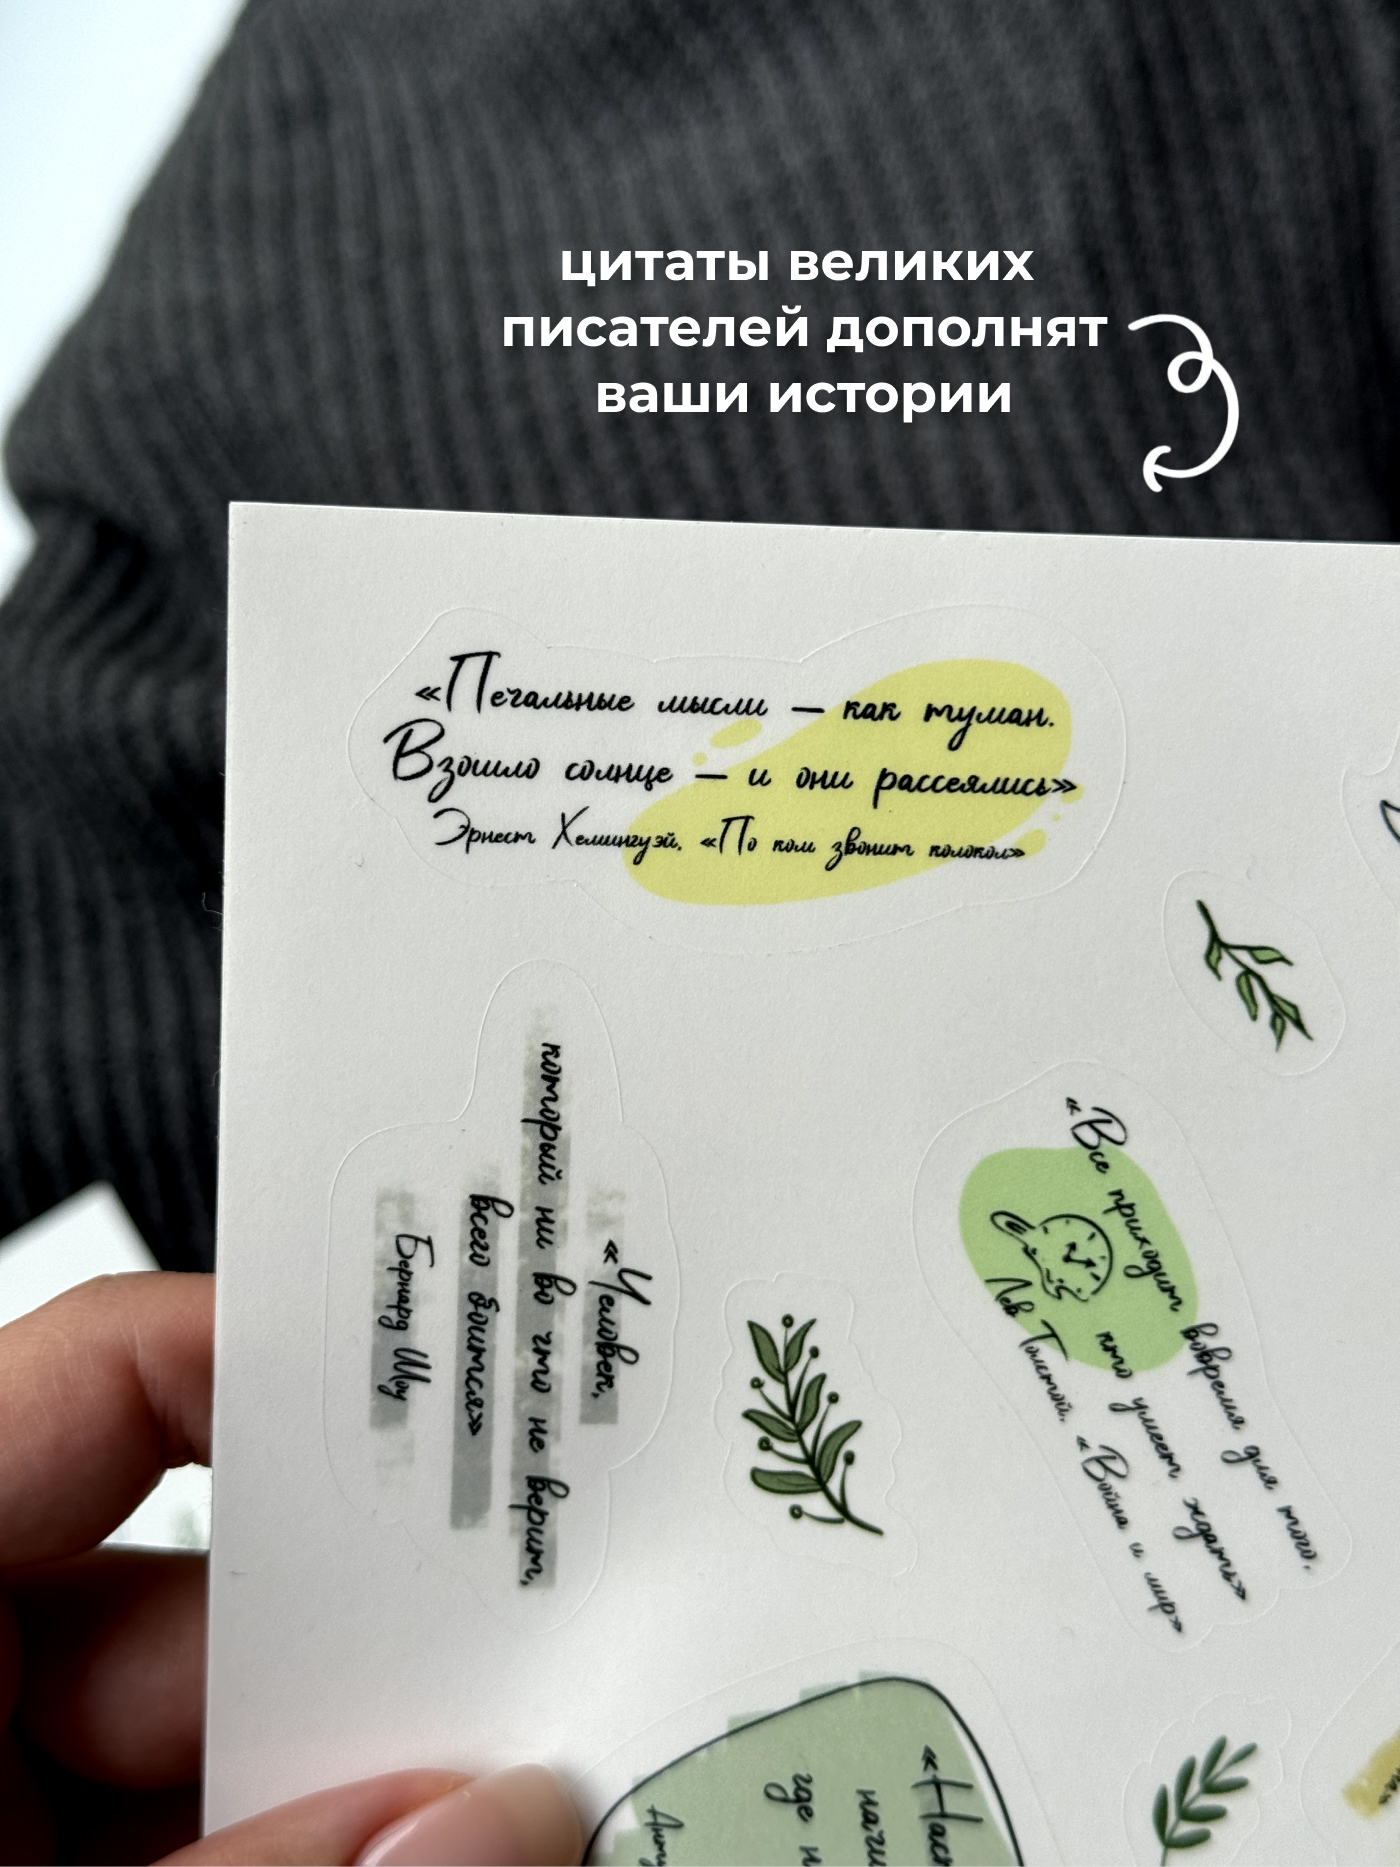 цитаты великих
писателей дополнят
ваши истории
«Печальные мысли — как туман.
Взошло солнце — и они рассеялись»
Эрнест Хемингуэй. «По ком звонит колокол»
«Человек,
который ни во что не верит,
всего боится»
Бернард Шоу
«Все приходит вовремя для того,
кто умеет ждать»
Лев Толстой. «Война и мир»